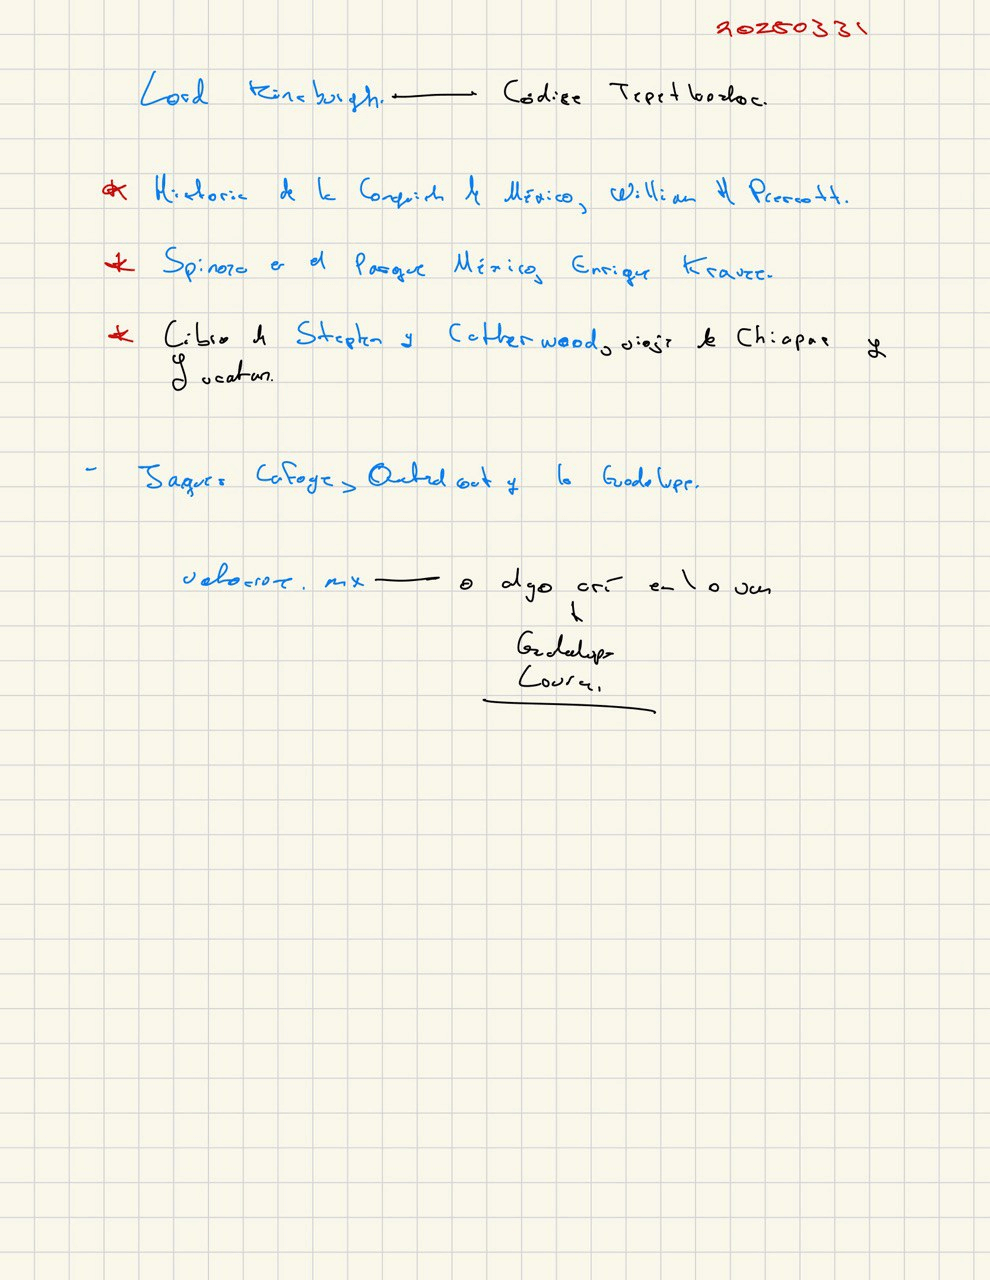 20250331
Lord Kinsburgh. Códice Tepetlaoztoc.
Historia de la Conquista de México, William H Prescott.
Spinoza en el Parque México, Enrique Krauze.
Libro de Stephen y Catherwood, viaje de Chiapas y
Yucatan.
- Jaques Lafaye, Quetzalcoat y la Guadalupe.
.mx o algo así en lo
Guadalupe